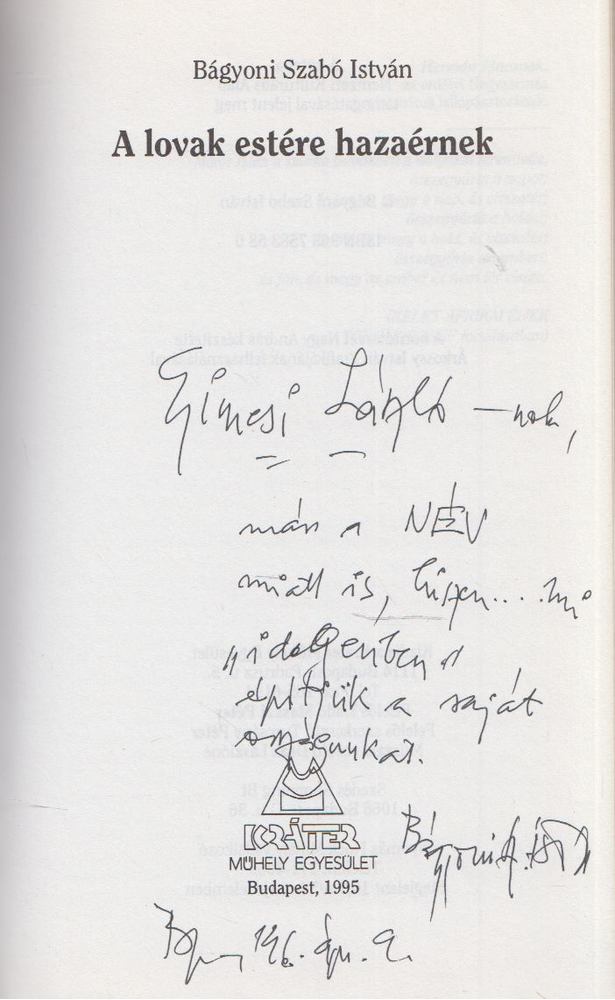 Bágyoni Szabó István
A lovak estére hazaérnek
Gimesi László-nak,
már a NÉV
miatt is, hiszen... mi
"idegenben"
építjük a saját
országunkat.
KRÁTER
MŰHELY EGYESÜLET
Budapest, 1995
Bágyoni Sz. István
Bp., 196. ápr. 9.